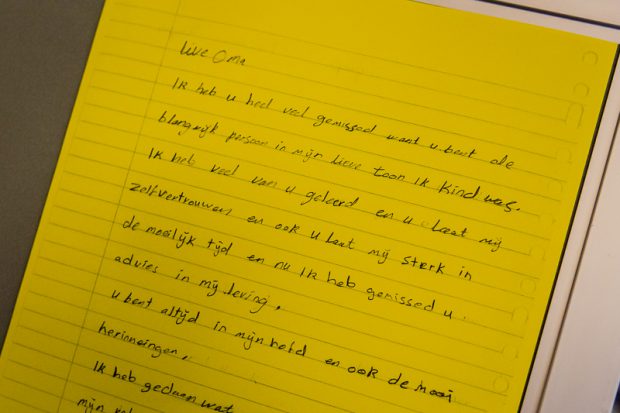 Lieve Oma
Ik heb u heel veel gemissed want u bent de
blangrijk persoon in mijn lieve toen ik kind was.
Ik heb veel van u geleerd en u laat mij
zelfvertrouwen en ook u laat mij sterk in
de moeilijk tijd en nu ik heb gemissed u.
advies in mij leving.
u bent altijd in mijn hofd en ook de mooi
herinneingen,
Ik heb gedaen wat
mijn